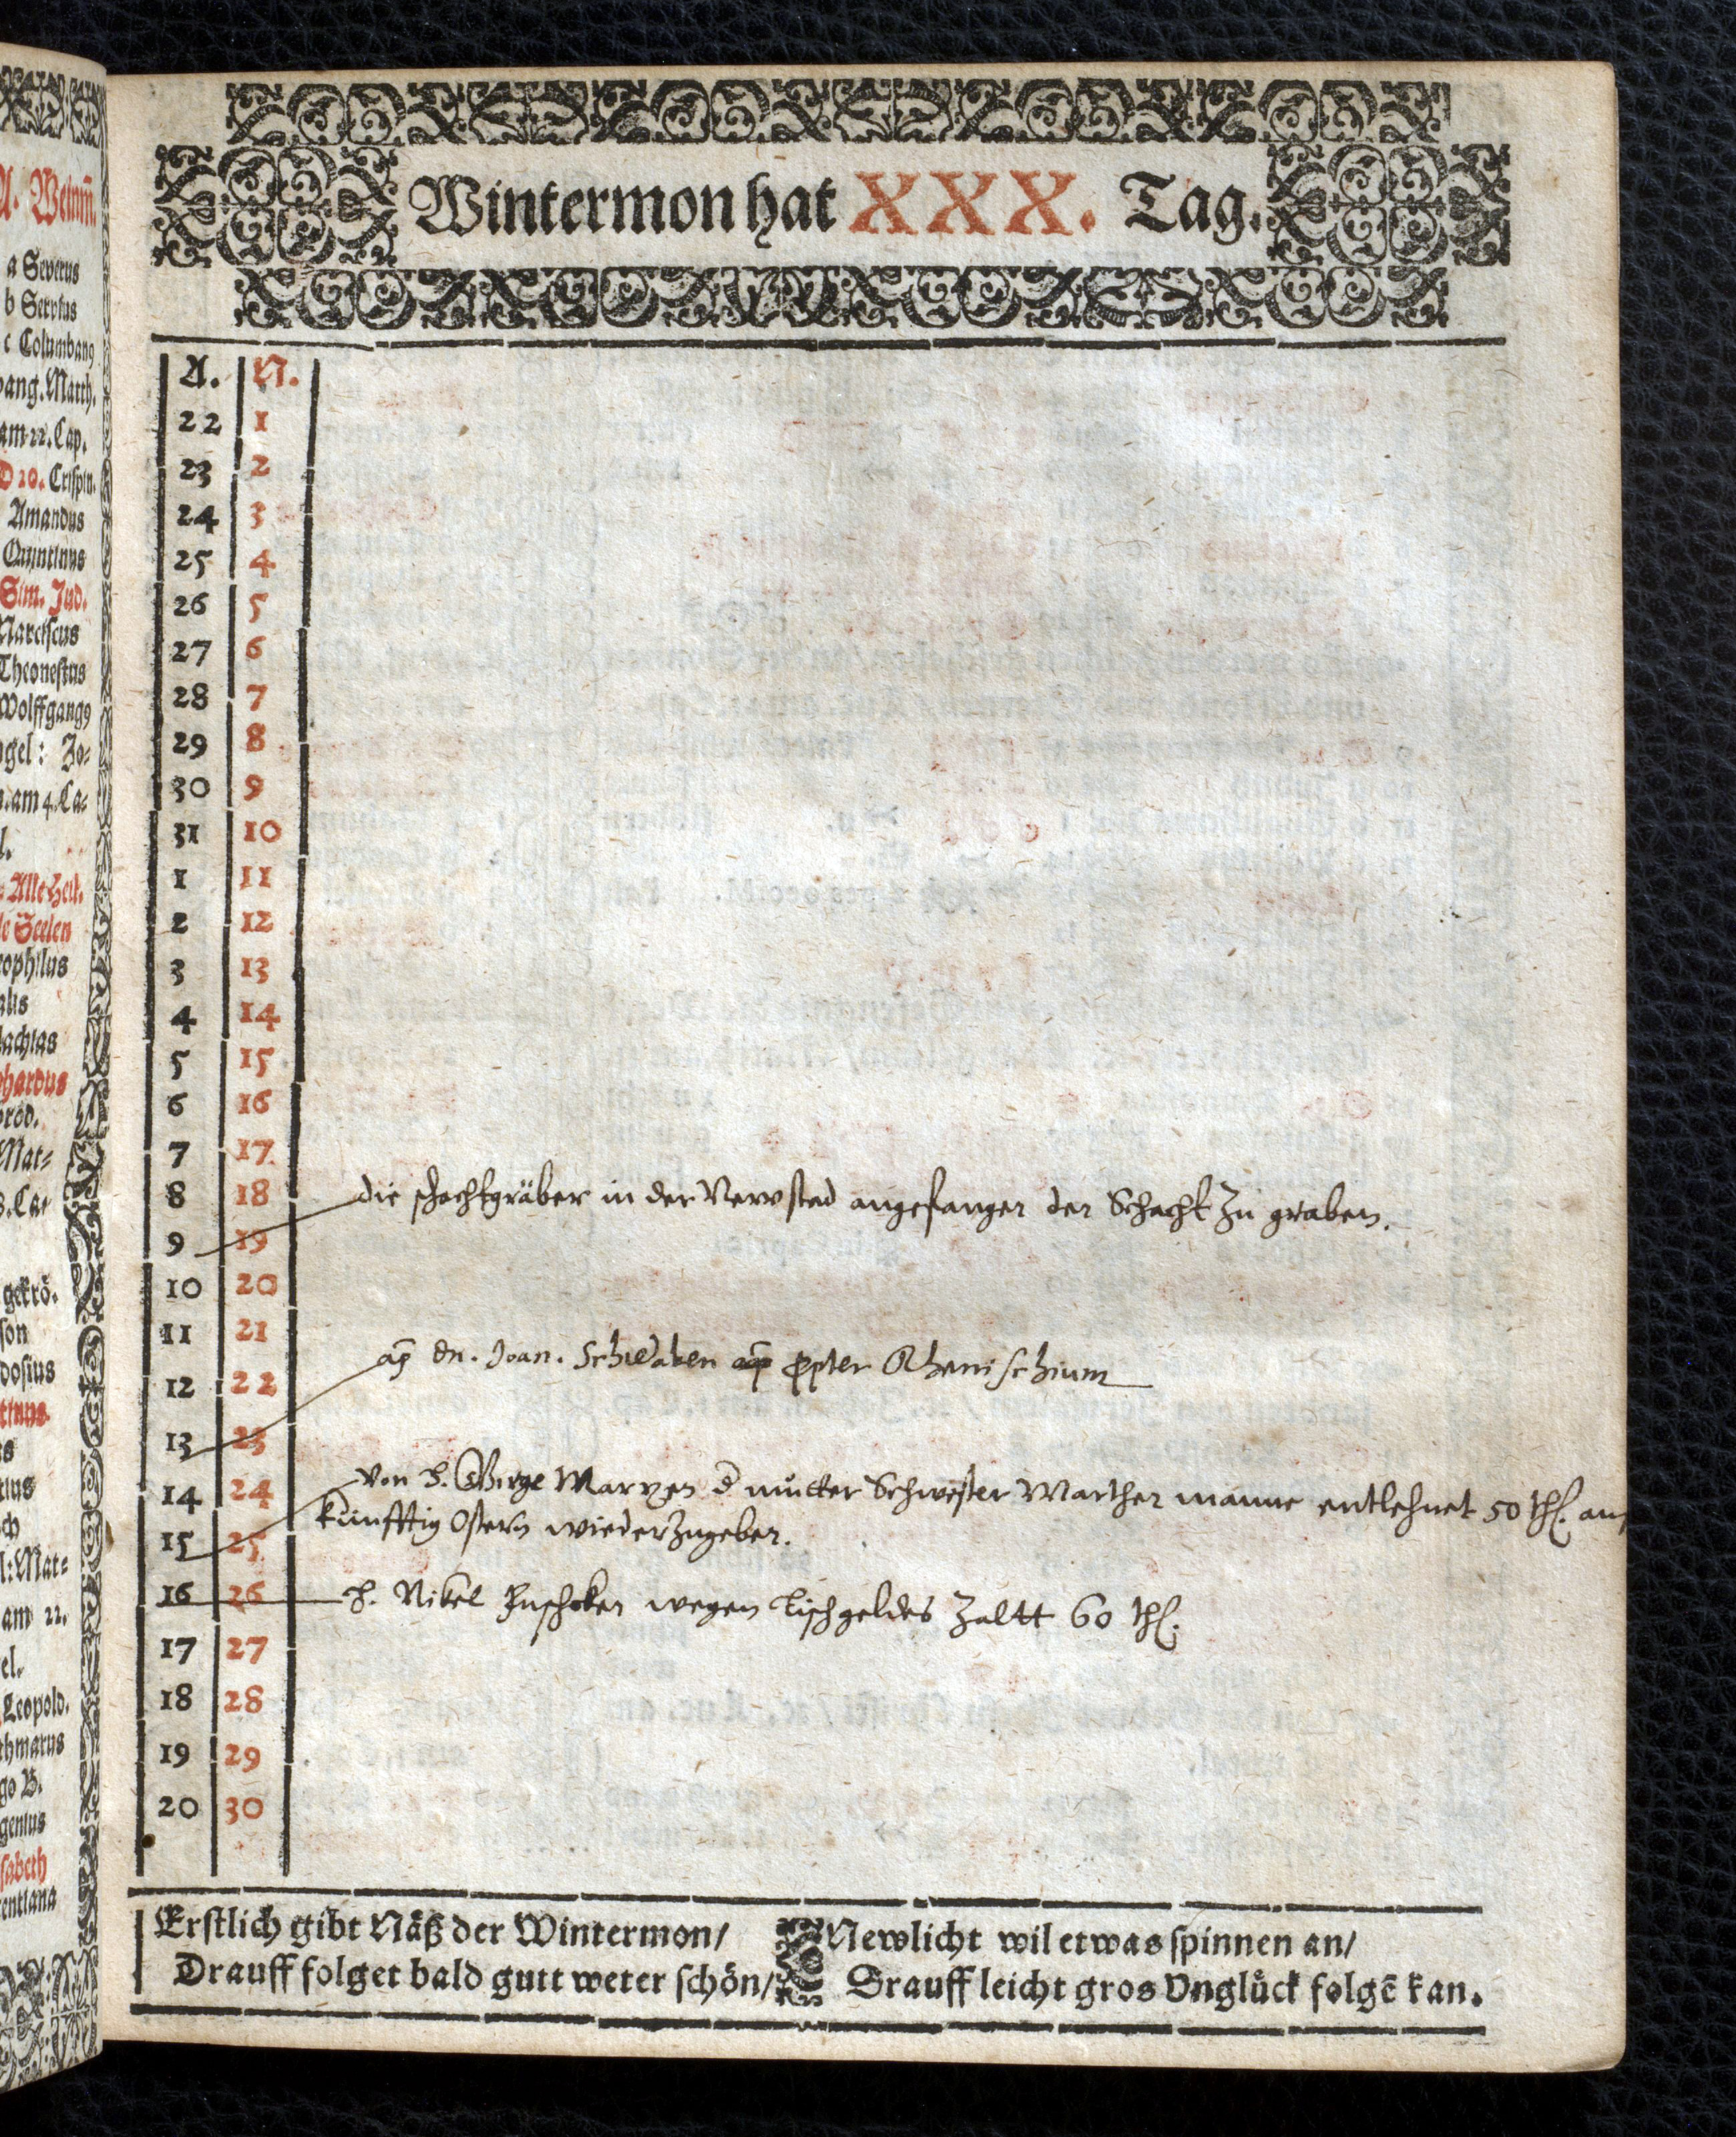 A. Weinm̃.
a Severus
b Serptus
c Columban9
vang. Matth.
am 22. Cap.
D 20. Crispin.
Amandus
Quintinus
Sim. Jud.
Narcissus
Theonestus
Wolffgang9
ngel: Jo-
n. am 4. Ca-
l.
Alle Heil.
le Seelen
eophilus
alis
lachias
nhardus
prod.
Mat-
8. Ca-
gekrö.
son
dosius
l: Mat-
am 22.
el.
Leopold.
thmarus
go B.
genius
sabeth
entiana
Wintermon hat XXX. Tag.
A. N.
22 1
23 2
24 3
25 4
26 5
27 6
28 7
29 8
30 9
31 10
1 11
2 12
3 13
4 14
5 15
6 16
7 17
8 18 die schachtgräber in der Newstad angefangen den Schacht zu graben.
9 19
10 20
11 21
ap dn. Joan. ppter Rhenischium
12 22
13 23
14 24 von H. Mutter Schwester Marthen manne entlehnet 50 thl. auf
künfftig Ostern wiederzugeben.
15 25
16 26 H. Nikel wegen tischgeldes zaltt 60 thl.
17 27
18 28
19 29
20 30
Erstlich gibt Näß der Wintermon/
Drauff folget bald gutt weter schön/
Newlicht wil etwas spinnen an/
Drauff leicht gros Vnglück folgē kan.